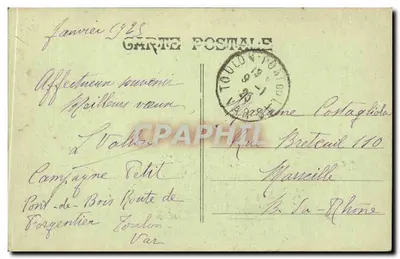 Janvier 1925
CARTE POSTALE
Affectueux souvenir
Meilleurs vœux
Campagne Petit
Pont-de-Bois Route de
Forgentier Toulon
Var
TOULON
VAR
Costagliola
Rue Breteuil 110
Marseille
B. du-Rhône
CPAPHIL